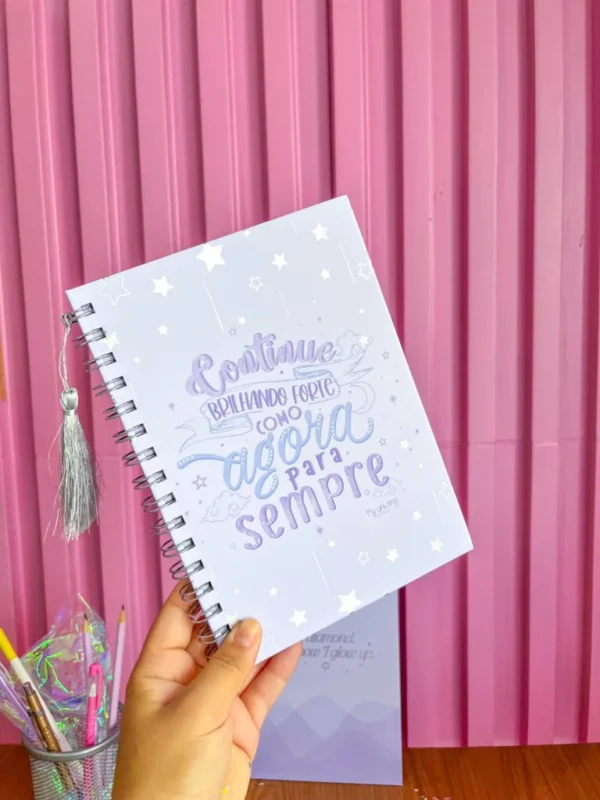 Continue
BRILHANDO FORTE
COMO
agora
para
sempre
diamond.
I glow up.